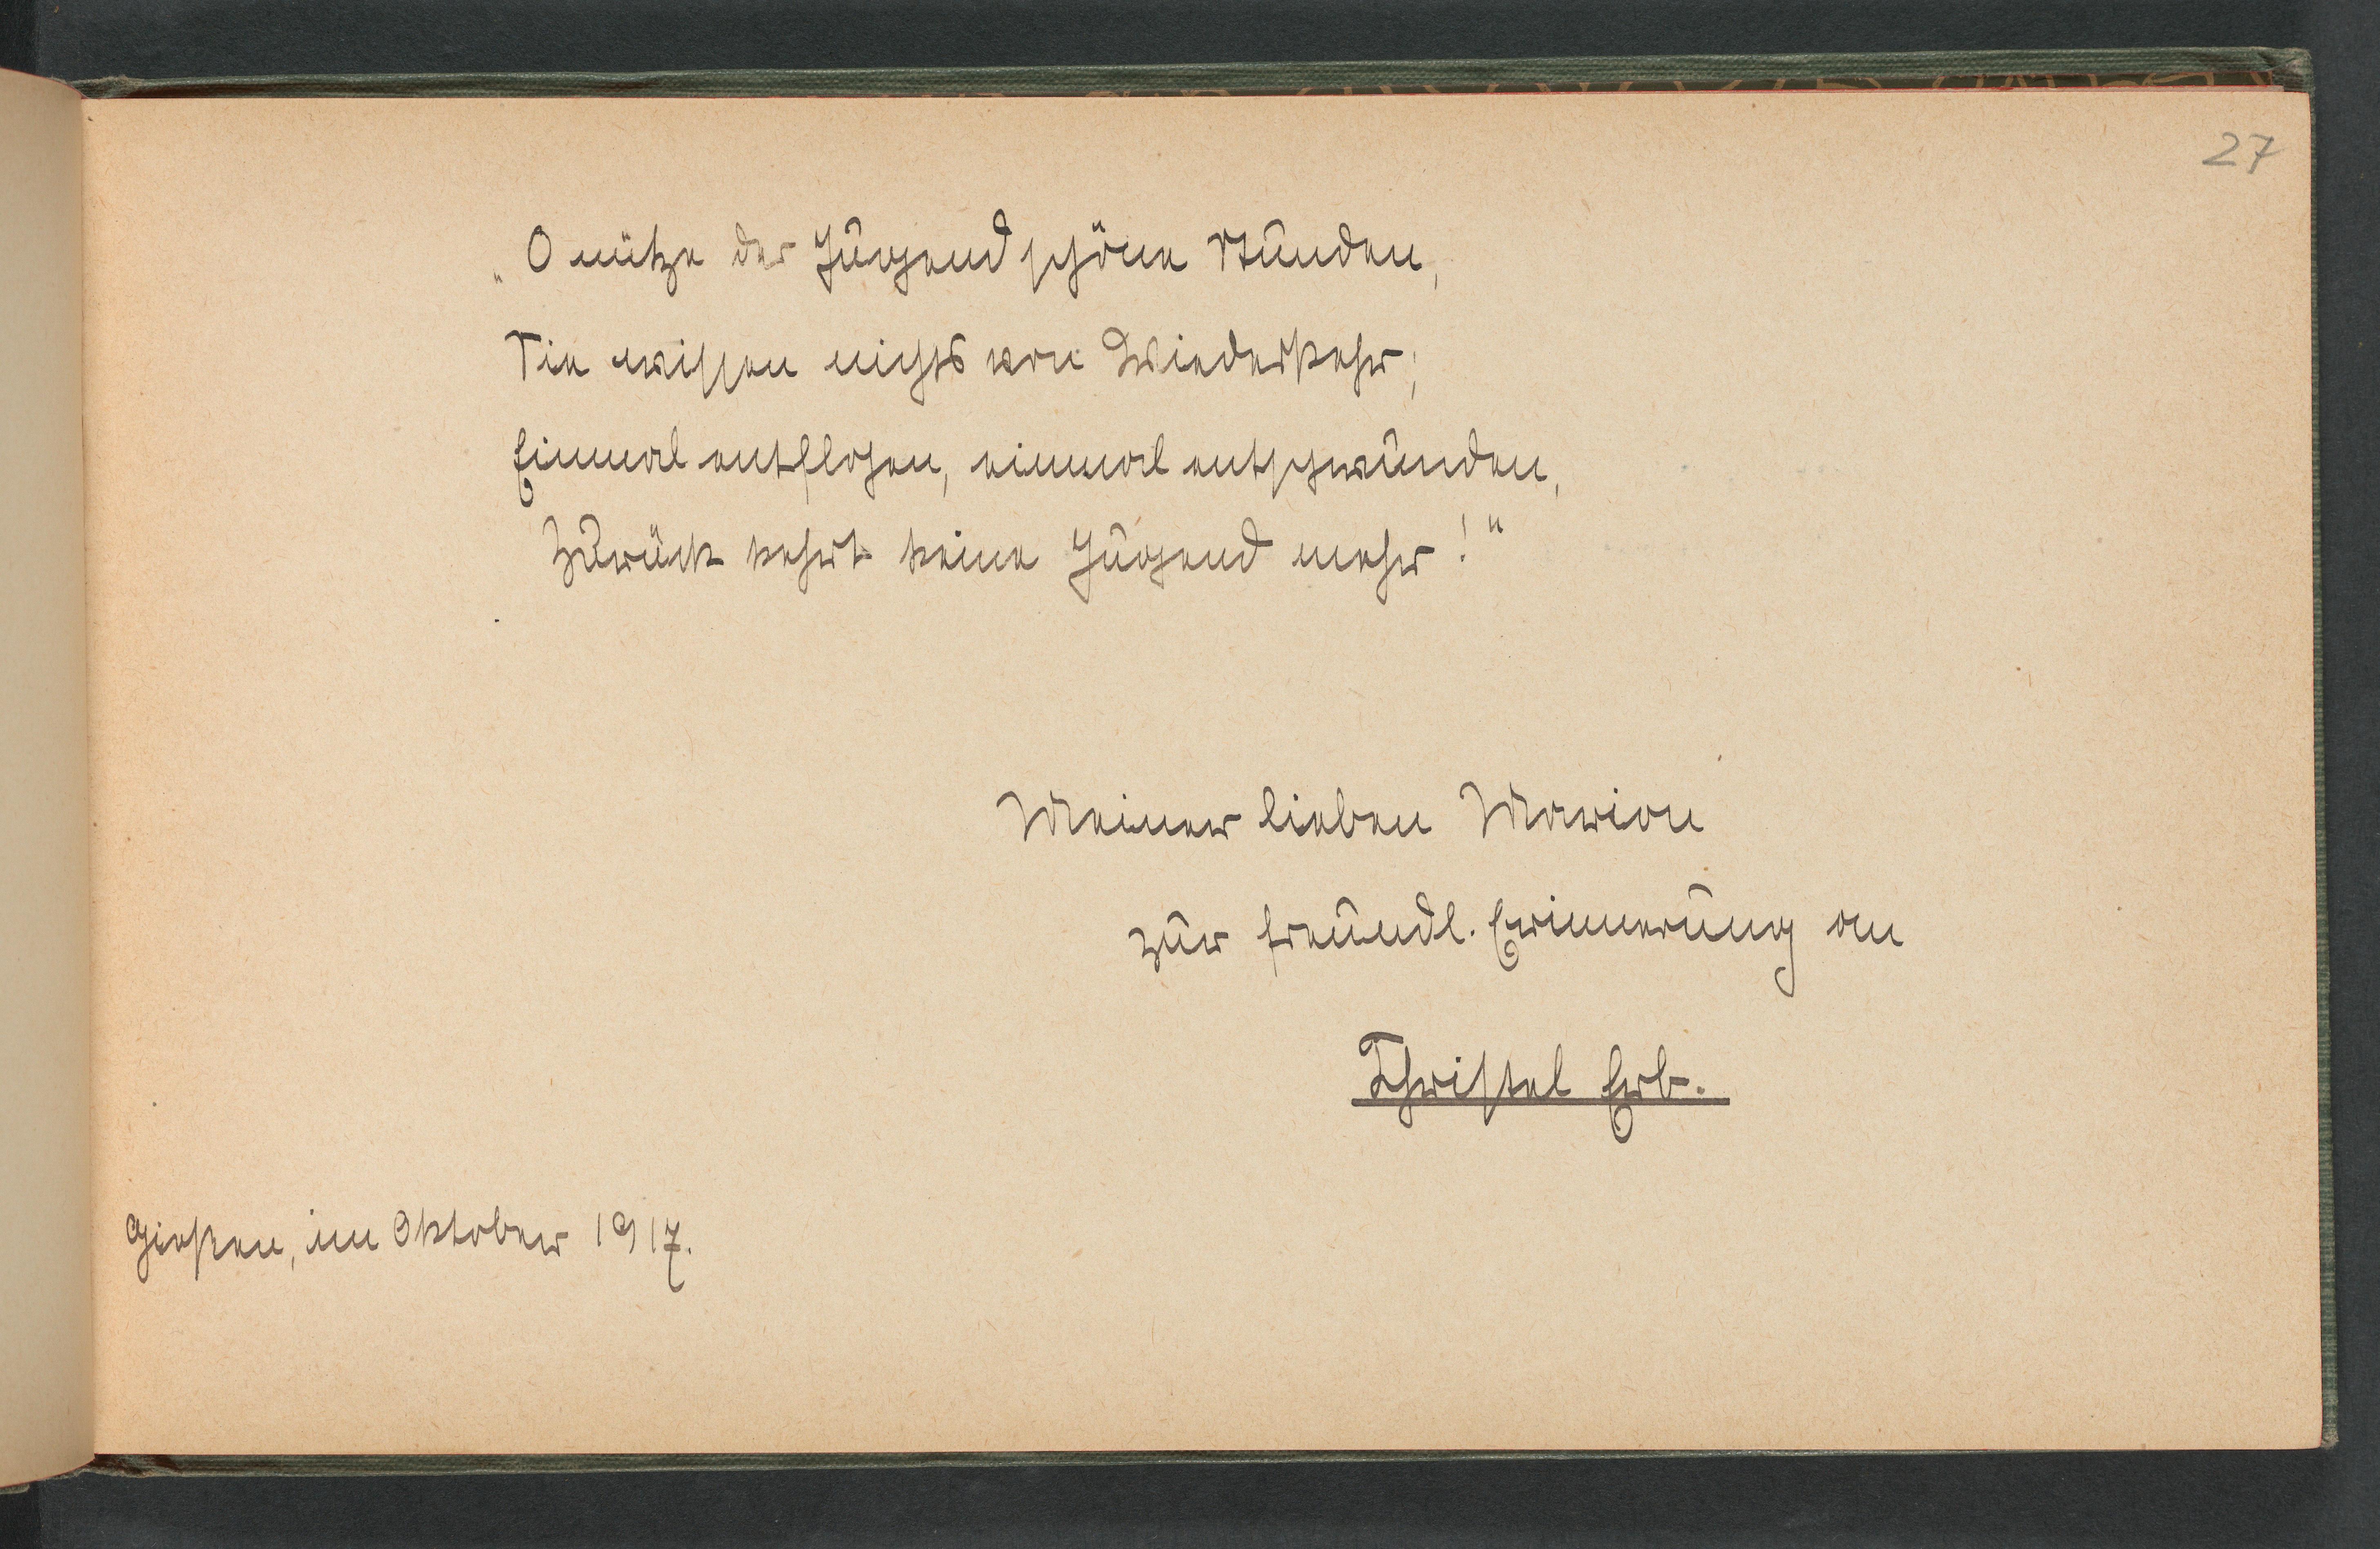 27
„O nütze der Jugend schöne Stunden,
Sie wissen nichts von Wiederkehr;
Einmal entflohen, einmal entschwunden,
Zurück kehrt keine Jugend mehr!“
Meiner lieben Marion
zur freundl. Erinnerung an
Christel Erb.
Gießen, im Oktober 1917.